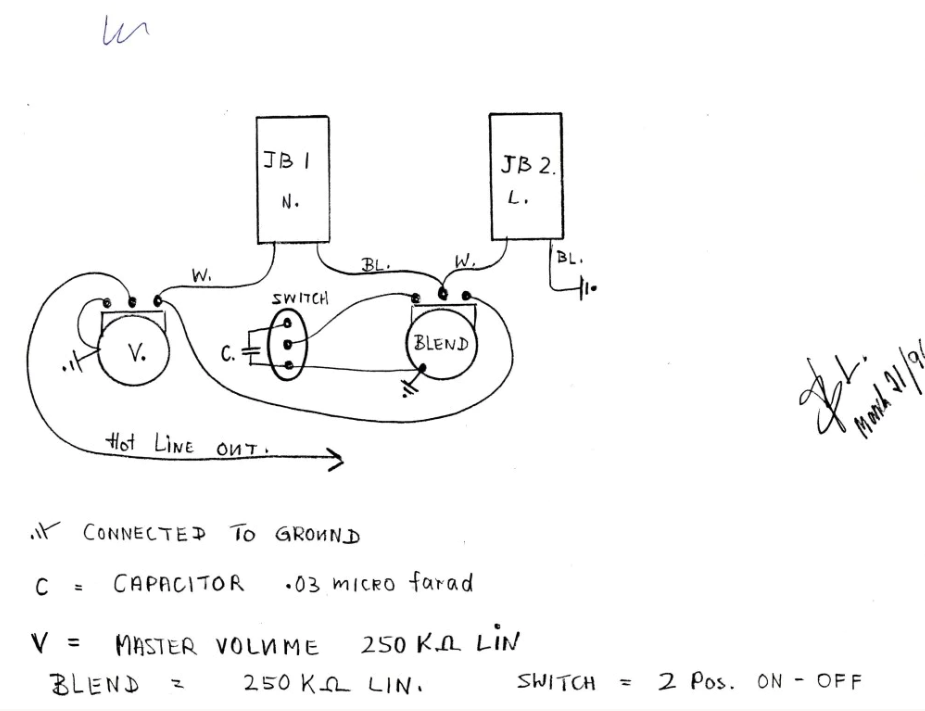 JB 1
N.
JB 2.
L.
W.
BL.
W.
BL.
SWITCH
V.
C.
BLEND
Hot LINE OUT.
L.
March 21/9
CONNECTED TO GROUND
C = CAPACITOR .03 MICRO farad
V = MASTER VOLUME 250 KΩ LIN
BLEND = 250 KΩ LIN.
SWITCH = 2 Pos. ON - OFF